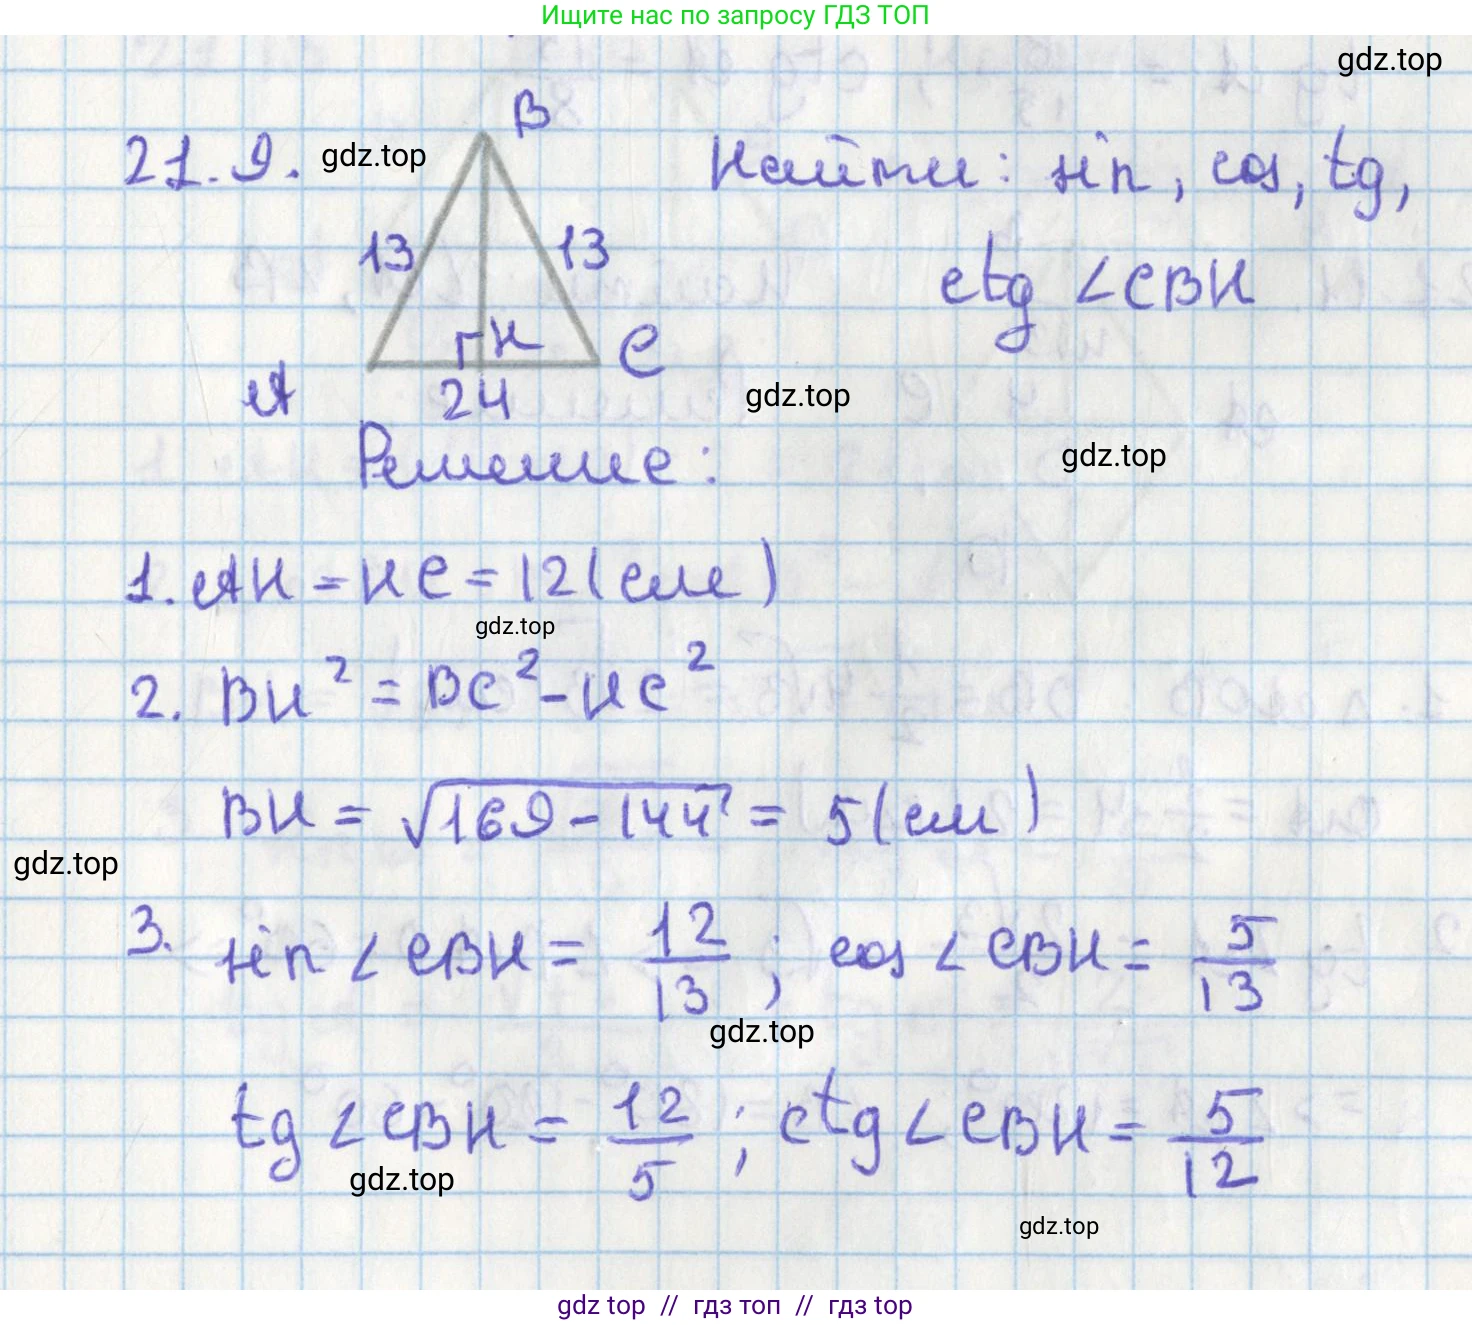 Ищите нас по запросу ГДЗ ТОП
gdz.top
B
21.9. gdz.top Найти: sin, cos, tg,
13 13
ctg ∠CBH
H C
A 24 gdz.top
Решение: gdz.top
1. AH = HC = 12 (см)
gdz.top
2. BH² = BC² - HC²
BH = √169 - 144 = 5 (см)
gdz.top
3. sin ∠CBH = 12/13 ; cos ∠CBH = 5/13
gdz.top
tg ∠CBH = 12/5 ; ctg ∠CBH = 5/12
gdz.top
gdz.top
gdz top // гдз топ // гдз top